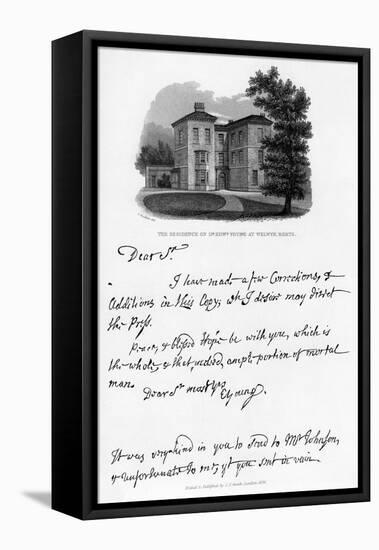 THE RESIDENCE OF Dr. EDWd. YOUNG AT WELWYN, HERTS.
Dear Sr.
I have made a few Corrections, &
Additions in this Copy; wh I desire may direct
the Press.
Peace, & blessed Hope be with you, which is
the whole, & that, indeed, ample portion of mortal
man.
Dear Sr most yrs
EYoung.
It was very kind in you to send to Mr Johnson,
& unfortunate to me, yt you sent in vain
Printed & Published by C.J. Smith, London,